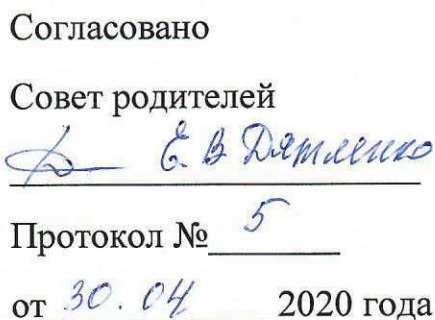 Согласовано
Совет родителей
Е. В Дятленко
Протокол № 5
от 30.04 2020 года